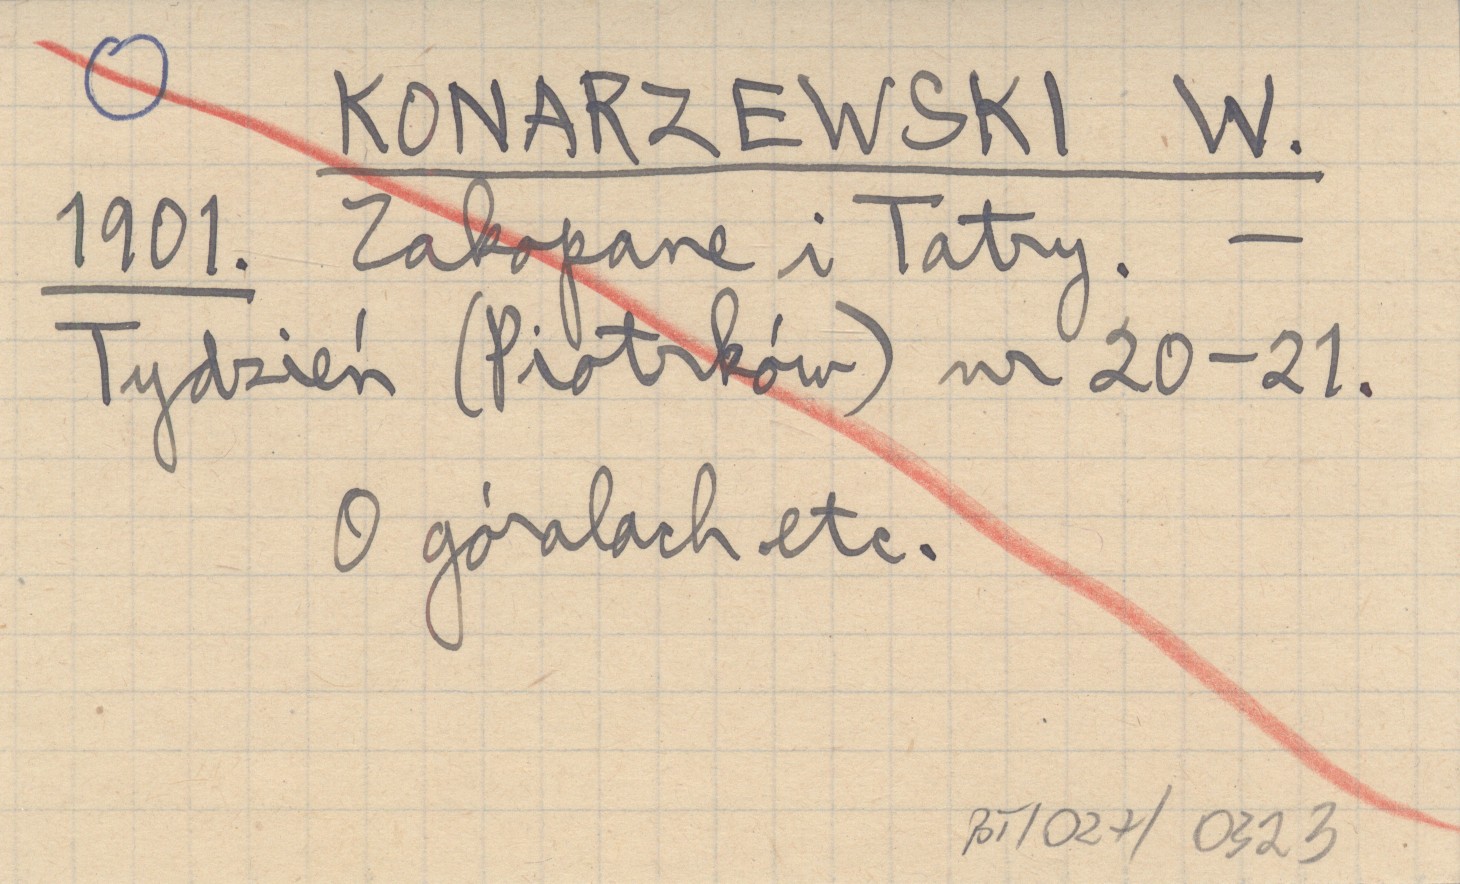 KONARZEWSKI W.
1901. Zakopane i Tatry. —
Tydzień (Piotrków) nr 20-21.
O góralach etc.
BT/027/ 0323